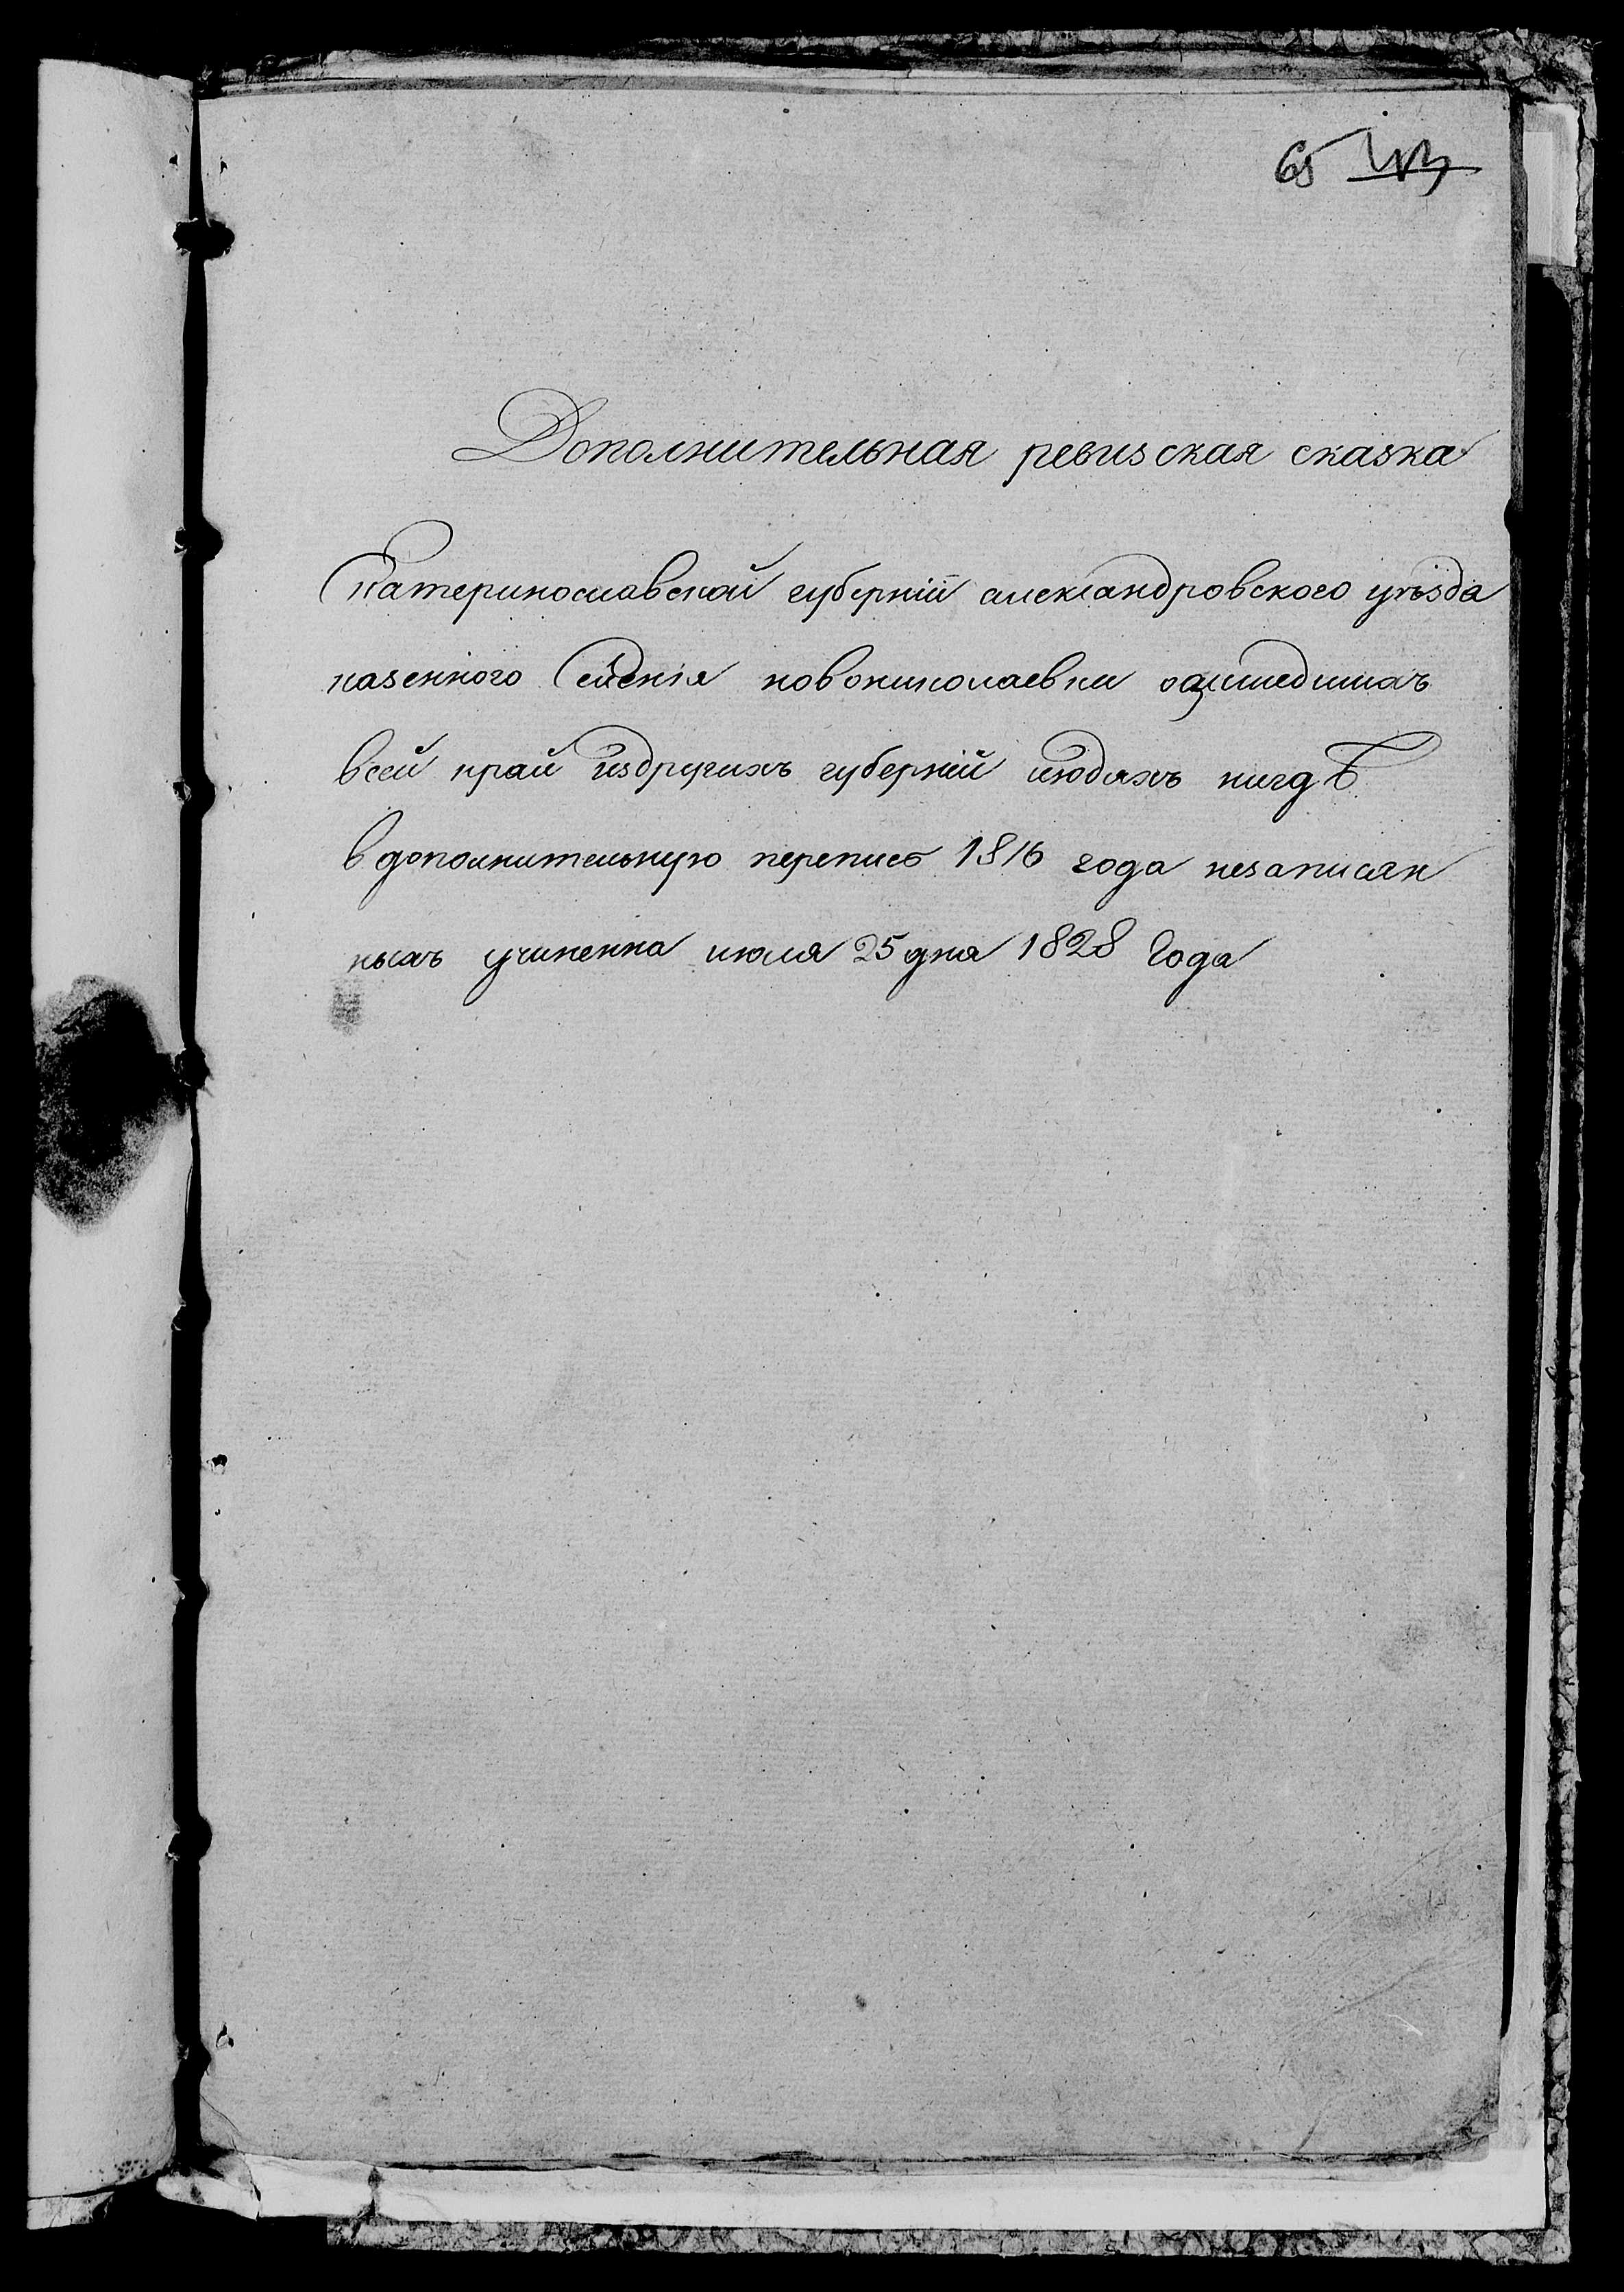 65
Дополнительная ревизская сказка
Екатеринославской губернїи александровского уѣзда
казенного Селенїя новониколаевки озашедшихъ
всей край издругихъ губернїй людяхъ нигдѣ
вдополнительную перепись 1816 года незаписан
ныхъ учиненна июля 25 дня 1828 Года